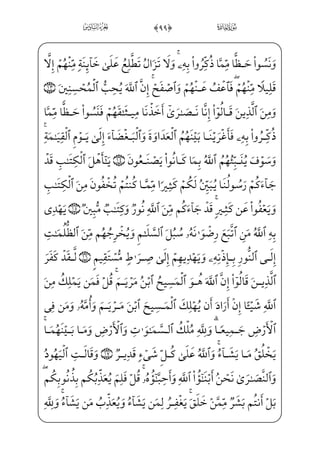 وَنَسُوا۟ حَظًّا مِّمَّا ذُكِّرُوا۟ بِهِۦ ۚ وَلَا تَزَالُ تَطَّلِعُ عَلَىٰ خَآئِنَةٍ مِّنْهُمْ إِلَّا
قَلِيلًا مِّنْهُمْ ۖ فَٱعْفُ عَنْهُمْ وَٱصْفَحْ ۚ إِنَّ ٱللَّهَ يُحِبُّ ٱلْمُحْسِنِينَ ١٣
وَمِنَ ٱلَّذِينَ قَالُوٓا۟ إِنَّا نَصَـٰرَىٰٓ أَخَذْنَا مِيثَـٰقَهُمْ فَنَسُوا۟ حَظًّا مِّمَّا
ذُكِّرُوا۟ بِهِۦ فَأَغْرَيْنَا بَيْنَهُمُ ٱلْعَدَاوَةَ وَٱلْبَغْضَآءَ إِلَىٰ يَوْمِ ٱلْقِيَـٰمَةِ ۚ
وَسَوْفَ يُنَبِّئُهُمُ ٱللَّهُ بِمَا كَانُوا۟ يَصْنَعُونَ ١٤ يَـٰٓأَهْلَ ٱلْكِتَـٰبِ قَدْ
جَآءَكُمْ رَسُولُنَا يُبَيِّنُ لَكُمْ كَثِيرًا مِّمَّا كُنتُمْ تُخْفُونَ مِنَ ٱلْكِتَـٰبِ
وَيَعْفُوا۟ عَن كَثِيرٍ ۚ قَدْ جَآءَكُم مِّنَ ٱللَّهِ نُورٌ وَكِتَـٰبٌ مُّبِينٌ ١٥ يَهْدِى
بِهِ ٱللَّهُ مَنِ ٱتَّبَعَ رِضْوَٰنَهُۥ سُبُلَ ٱلسَّلَـٰمِ وَيُخْرِجُهُم مِّنَ ٱلظُّلُمَـٰتِ
إِلَى ٱلنُّورِ بِإِذْنِهِۦ وَيَهْدِيهِمْ إِلَىٰ صِرَٰطٍ مُّسْتَقِيمٍ ١٦ لَّقَدْ كَفَرَ
ٱلَّذِينَ قَالُوٓا۟ إِنَّ ٱللَّهَ هُوَ ٱلْمَسِيحُ ٱبْنُ مَرْيَمَ ۚ قُلْ فَمَن يَمْلِكُ مِنَ
ٱللَّهِ شَيْـًٔا إِنْ أَرَادَ أَن يُهْلِكَ ٱلْمَسِيحَ ٱبْنَ مَرْيَمَ وَأُمَّهُۥ وَمَن فِى
ٱلْأَرْضِ جَمِيعًا ۗ وَلِلَّهِ مُلْكُ ٱلسَّمَـٰوَٰتِ وَٱلْأَرْضِ وَمَا بَيْنَهُمَا ۚ
يَخْلُقُ مَا يَشَآءُ ۚ وَٱللَّهُ عَلَىٰ كُلِّ شَىْءٍ قَدِيرٌ ١٧ وَقَالَتِ ٱلْيَهُودُ
وَٱلنَّصَـٰرَىٰ نَحْنُ أَبْنَـٰٓؤُا۟ ٱللَّهِ وَأَحِبَّـٰٓؤُهُۥ ۚ قُلْ فَلِمَ يُعَذِّبُكُم بِذُنُوبِكُم ۖ
بَلْ أَنتُم بَشَرٌ مِّمَّنْ خَلَقَ ۚ يَغْفِرُ لِمَن يَشَآءُ وَيُعَذِّبُ مَن يَشَآءُ ۚ وَلِلَّهِ